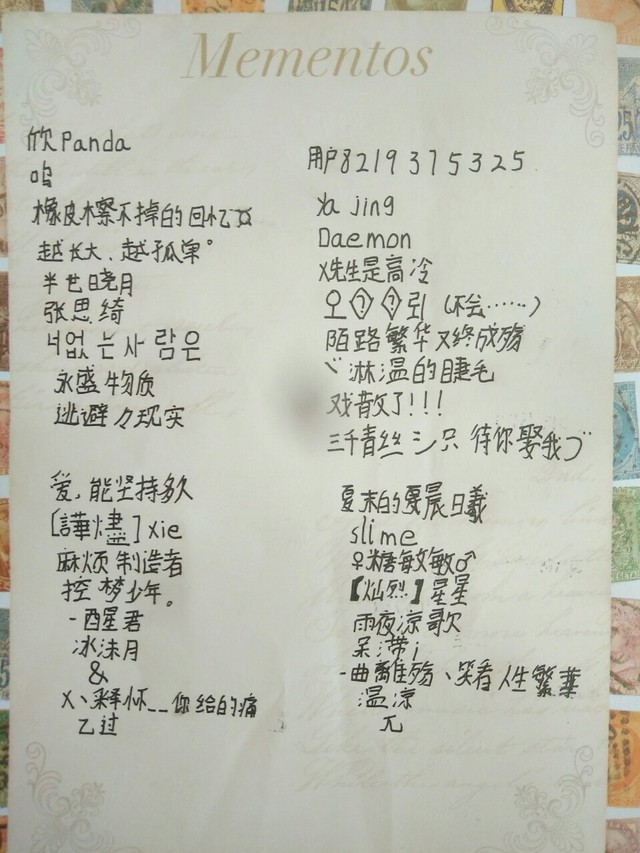 Mementos
欣Panda
呜
橡皮檫不掉的回忆
越长大、越孤单°
半世晓月
张思绮
너없는사람은
永盛物质
逃避々现实
爱,能坚持多久
[譁燼]xie
麻烦制造者
控梦少年。
-酉星君
冰沫月
&
乂丶释怀__你给的痛
乙过
用户8219375325
Ya jing
Daemon
乂先生是高冷
오��引(不会……)
陌路繁华又终成殇
淋温的睫毛
戏散了!!!
三千青丝シ只待你娶我づ
夏末的夏晨日羲
slime
♀糖敏敏♂
【灿烈】星星
雨夜凉歌
呆滞i
-曲離殇、笑看人生繁華
温凉
兀